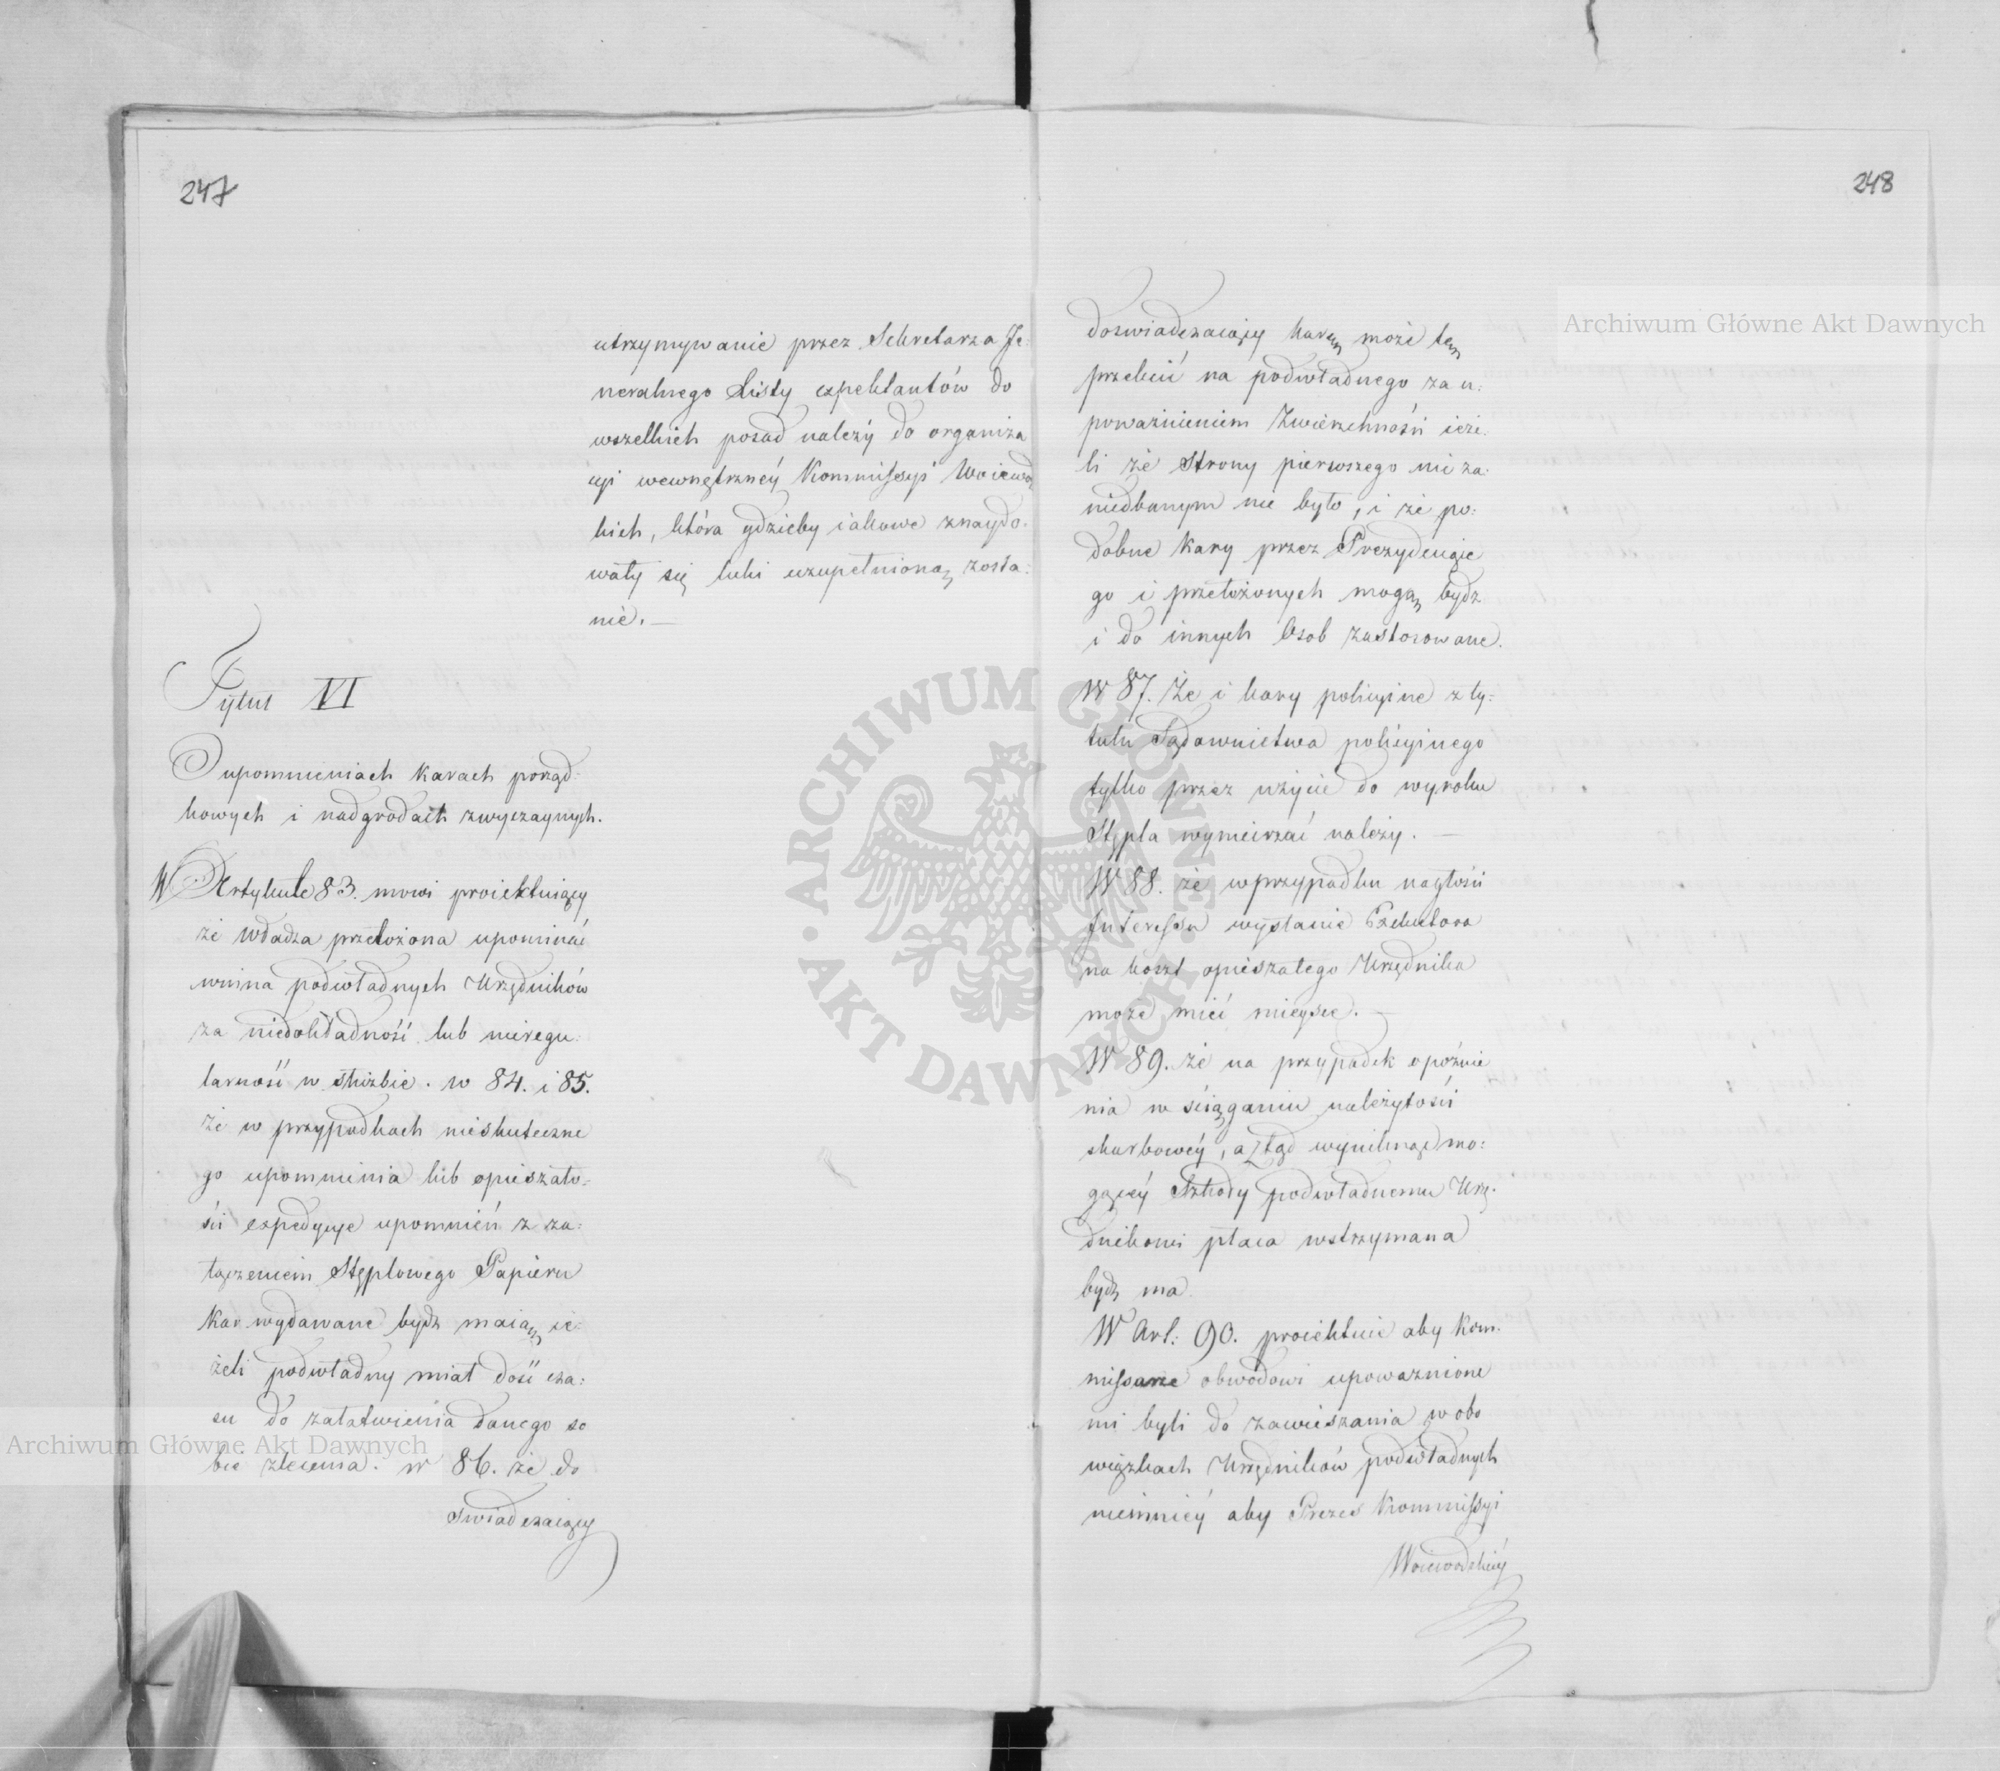 247
utrzymywanie przez Sekretarza Je:
neralnego Listy expektantów do
wszelkich posad należy do organiza
cyi wewnętrzney Kommissyi Woiewodz
kich, która gdzieby iakowe znaydo:
wały się luki uzupełnioną zosta:
nie. —
Tytuł VI
O upomnieniach karach porząd:
kowych i nadgrodach zwyczaynych.
W Artykule 83. mowi proiektuiący
że Władza przełożona upominać
winna podwładnych Urzędników
za niedokładność lub nieregu:
larność w służbie. w 84. i 85.
że w przypadkach nieskuteczne
go upomnienia lub opieszało:
ści expedycye upomnień z za:
łączeniem Stęplowego Papieru
Kar wydawane bydz maią ie:
żeli podwładny miał dość cza:
su do załatwienia danego so
bie zlecenia. w 86. że do
świadczaiący
248
doswiadczaiący karę może tę
przelać na podwładnego za u:
poważnieniem Zwierzchności ieże:
li ze Strony pierwszego nic za:
niedbanym nie było, i że po:
dobne Kary przez Prezyduiące
go i przełożonych mogą bydz
i do innych Osob zastosowane.
W 87. Że i kary policyine z ty:
tułu Sądownictwa policyinego
tylko przez użycie do wyroku
Stępla wymierzać należy. —
W 88. że w przypadku nagłości
Interessu wysłanie Exekutora
na koszt opieszałego Urzędnika
może mieć mieysce. —
W 89. że na przypadek opoźnie
nia w ściąganiu należytości
skarbowéy, a ztąd wyniknąć mo:
gącéy Szkody podwładnemu Urzę:
dnikowi płaca wstrzymana
bydz ma.
W Art: 90. proiektuie aby Kom:
missarze obwodowi upoważnione
mi byli do zawieszania w obo
wiązkach Urzędników podwładnych
niemniéy aby Prezes Kommissyi
Woiewodzkiéy
Archiwum Główne Akt Dawnych
Archiwum Główne Akt Dawnych
ARCHIWUM GŁÓWNE · AKT DAWNYCH ·